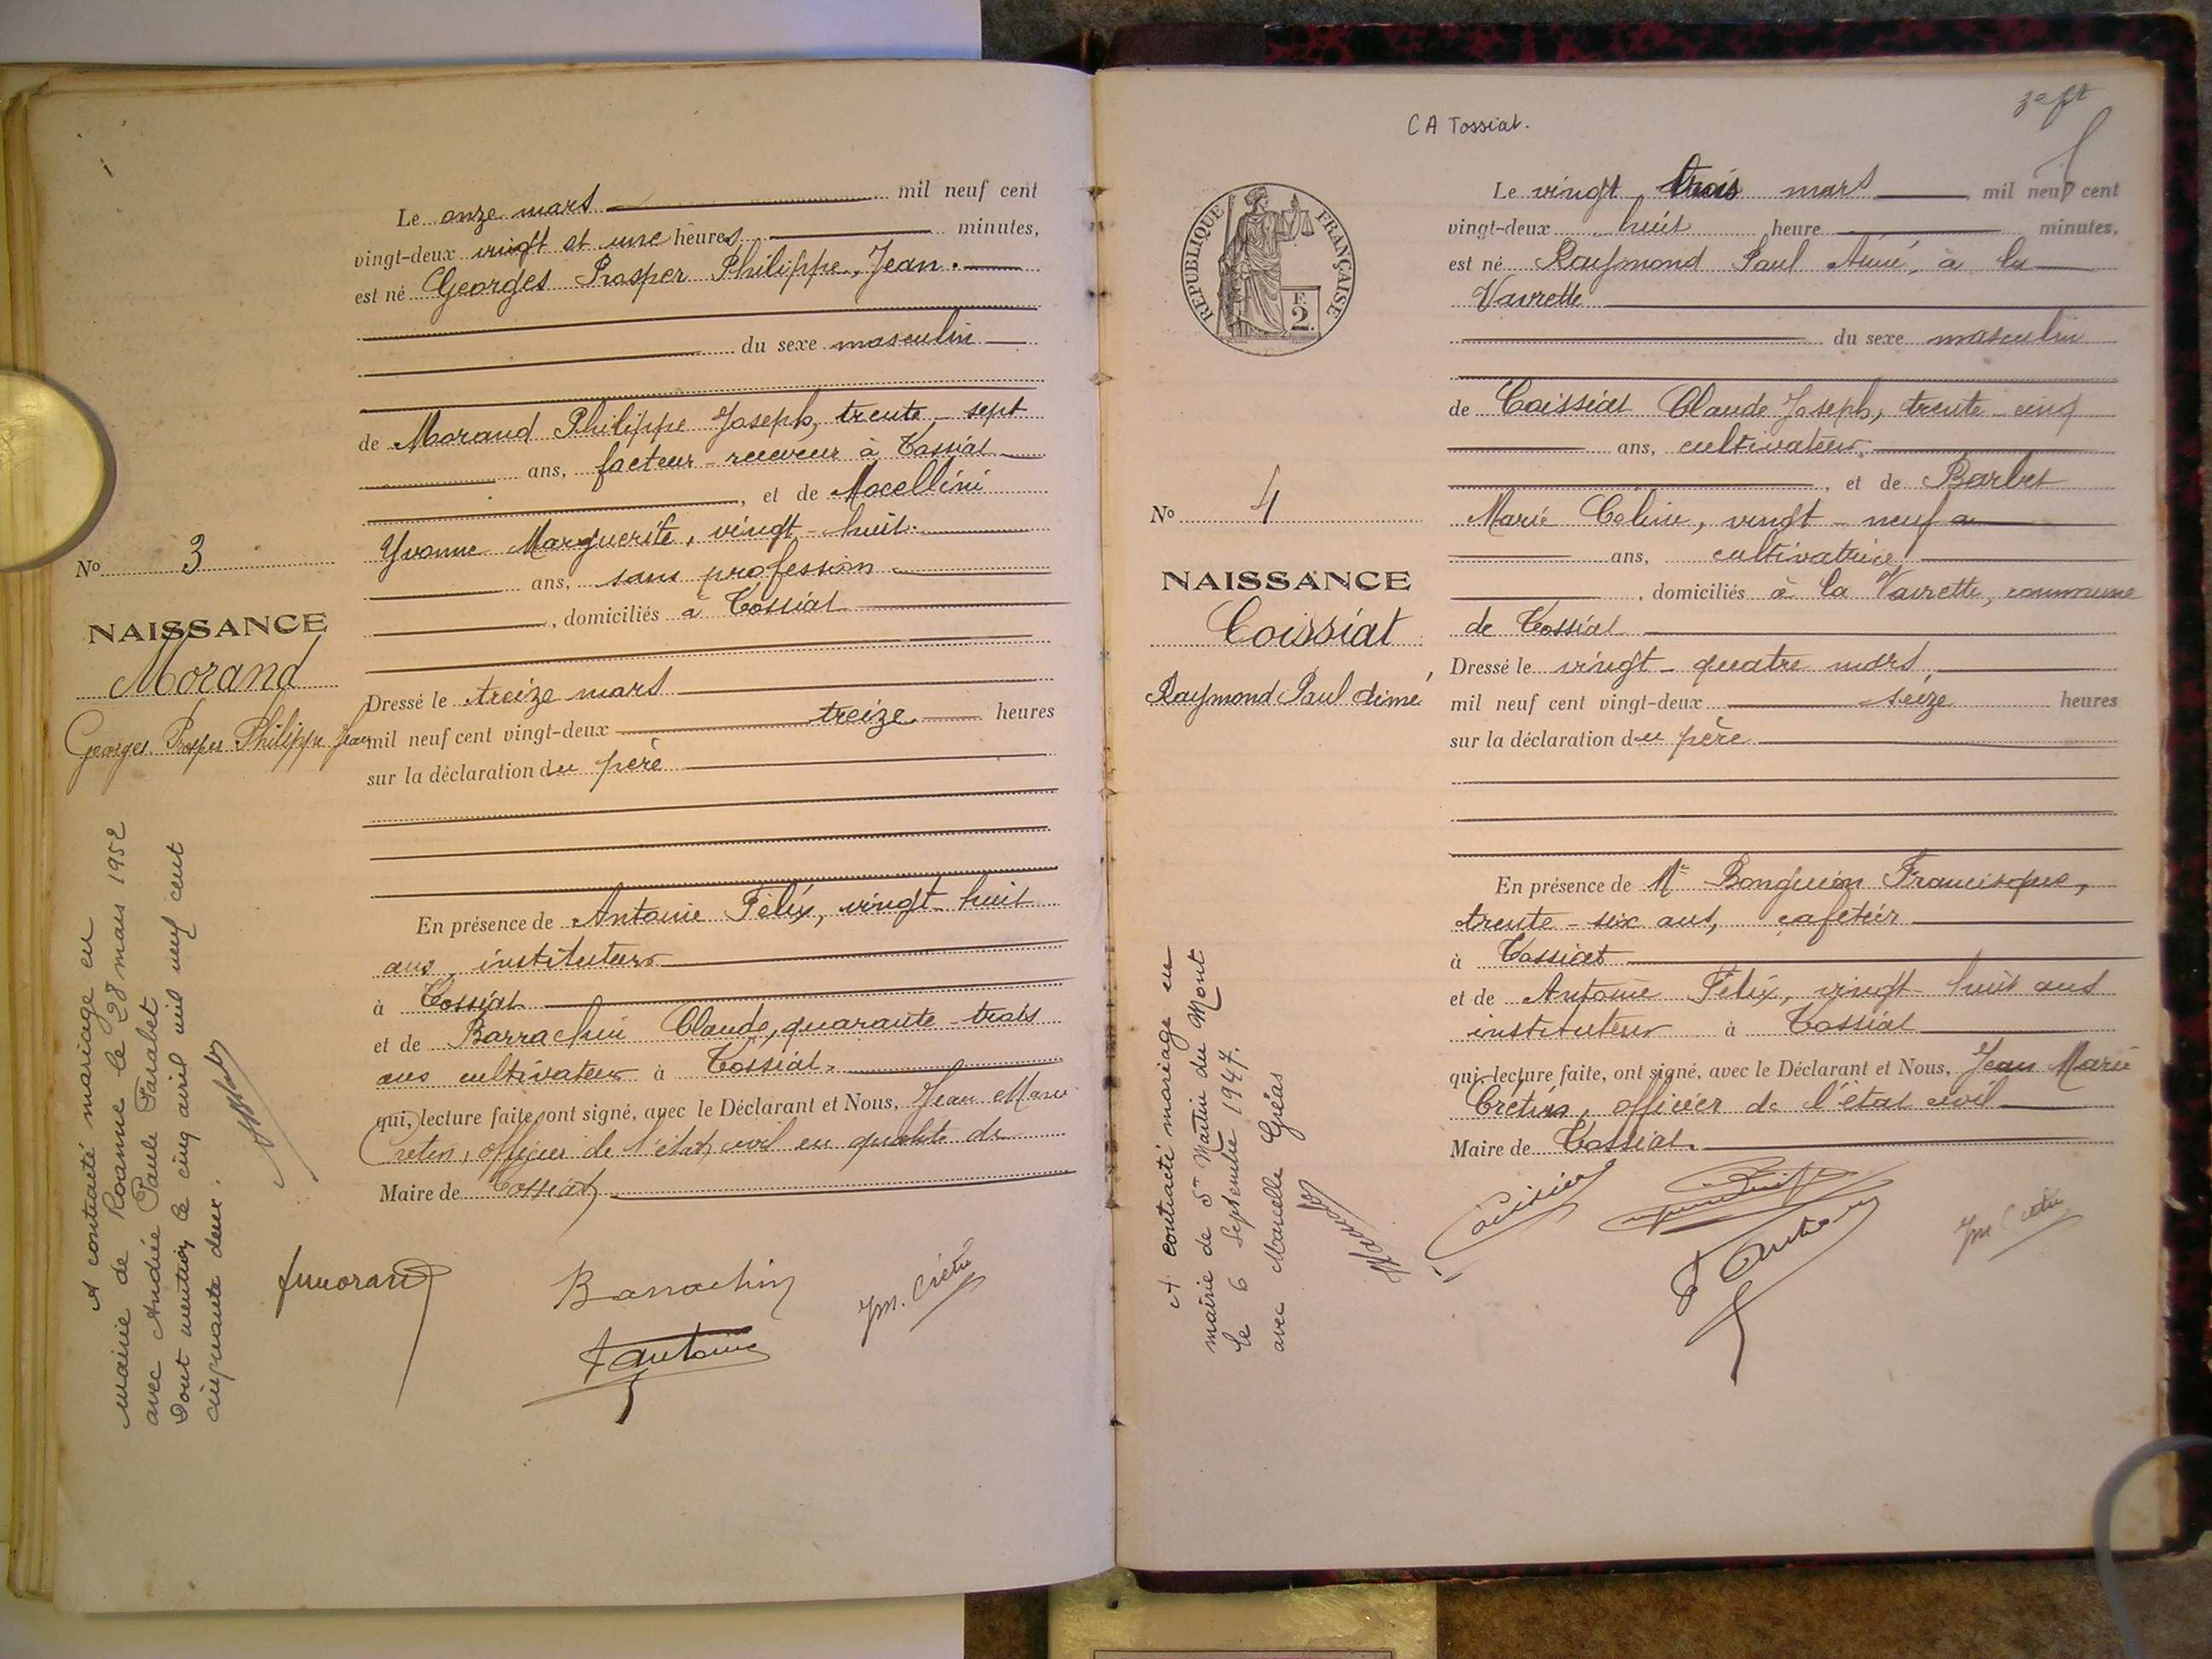 Le onze mars mil neuf cent
vingt-deux vingt et une heures minutes,
est né Georges Prosper Philippe, Jean.
du sexe masculin
de Morand Philippe Joseph, trente-sept
ans, facteur-receveur à Tossiat
, et de Mocellini
Yvonne Marguerite, vingt-huit
ans, sans profession
, domiciliés à Tossiat
Dressé le treize mars
mil neuf cent vingt-deux treize heures
sur la déclaration du père
En présence de Antoine Félix, vingt-huit
ans, instituteur
à Tossiat
et de Barrachin Claude, quarante-trois
ans cultivateur à Tossiat.
qui, lecture faite, ont signé, avec le Déclarant et Nous, Jean Marie
Cretin, officier de l'état civil en qualité de
Maire de Tossiat
No 3
NAISSANCE
Morand
Georges Prosper Philippe Jean
A contracté mariage en
mairie de Roanne le 28 mars 1952
avec Andrée Paule Farabet
Dont mention, le cinq avril mil neuf cent
cinquante deux.
Morand
Barrachin
F Antoine
Jm. Crétin
CA Tossiat.
Le vingt trois mars mil neuf cent
vingt-deux huit heure minutes,
est né Raymond Paul Aimé, à la
Vavrette
du sexe masculin
de Coissiat Claude Joseph, trente cinq
ans, cultivateur,
, et de Barbet
Marie Céline, vingt-neuf
ans, cultivatrice
, domiciliés à la Vavrette, commune
de Tossiat
Dressé le vingt-quatre mars,
mil neuf cent vingt-deux seize heures
sur la déclaration du père
En présence de Mr Bonguion Francisque,
trente-six ans, cafetier
à Tossiat
et de Antoine Félix, vingt-huit ans
instituteur à Tossiat
qui, lecture faite, ont signé, avec le Déclarant et Nous, Jean Marie
Cretin, officier de l'état civil
Maire de Tossiat.
RÉPUBLIQUE FRANÇAISE
F.
2.
No 4
NAISSANCE
Coissiat
Raymond Paul Aimé
A contracté mariage en
mairie de St Martin du Mont
le 6 Septembre 1947.
avec Marcelle Gréas
Coissiat
F Antoine
Jm Crétin